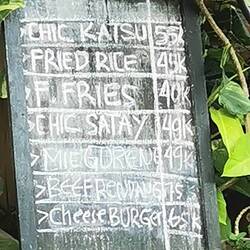 CHIC KATSU 55K
>FRIED RICE 45K
>F FRIES 40K
>CHIC SATAY 49K
>MIE GORENG 49K
>BEEF RENDANG
>CHeese BURGER